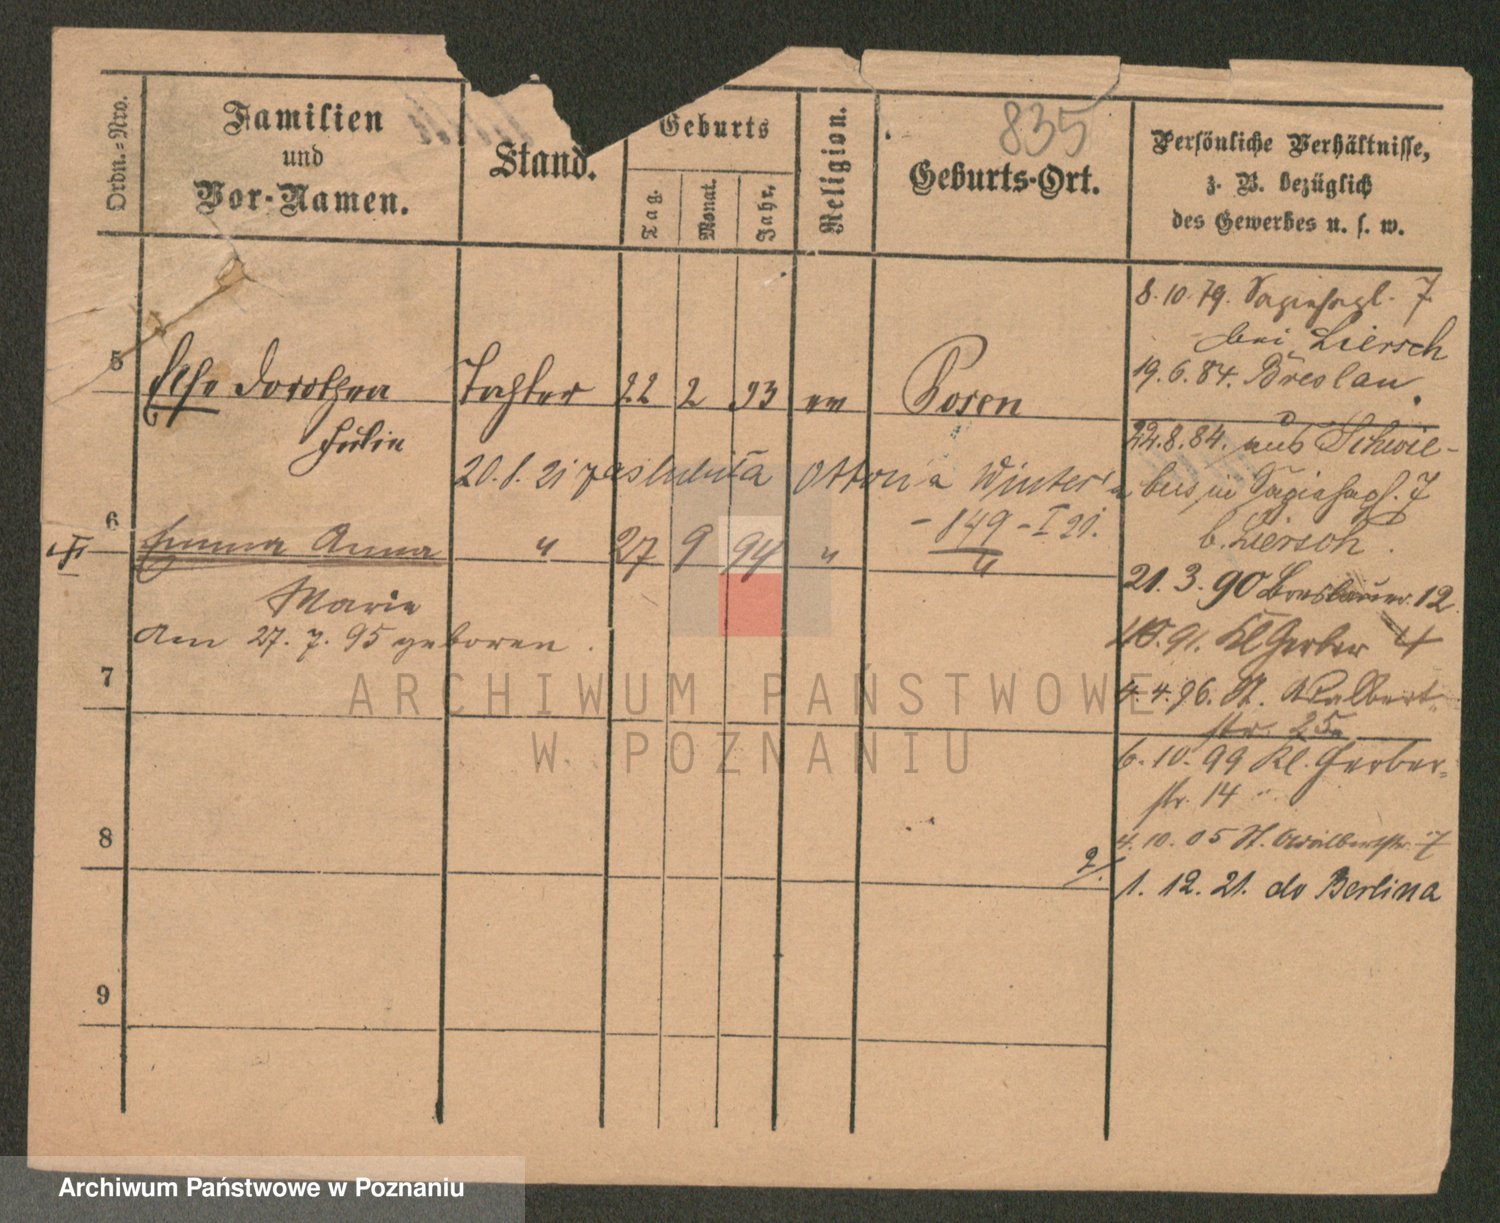 835
Ordn.-Nro.
Familien
und
Vor-Namen.
Stand.
Geburts
Tag.
Monat.
Jahr.
Religion.
Geburts-Ort.
Persönliche Verhältnisse,
z. B. bezüglich
des Gewerbes u. s. w.
8.10.79. 7
bei Liersch
19.6.84. Breslau.
5 Else Dorothea Tochter 22 2 93 ev Posen
Julie
22.8.84. aus Schwie-
bus in 7
b. Liersch.
20. 8. 21 zaslubiła Ottona Winter'a
- 149 - I 21.
6 Emma Anna " 27 9 94 " "
Marie
am 27. 7. 95 geboren.
21. 3. 90 12
91. Kl Gerber 4
4. 4. 96. St. Adalbert-
str. 25
6. 10. 99 Kl. Gerber-
str. 14
4. 10. 05 St. Adalbertstr. 7
2/. 1. 12. 21. do Berlina
7
8
9
ARCHIWUM PAŃSTWOWE
W POZNANIU
Archiwum Państwowe w Poznaniu